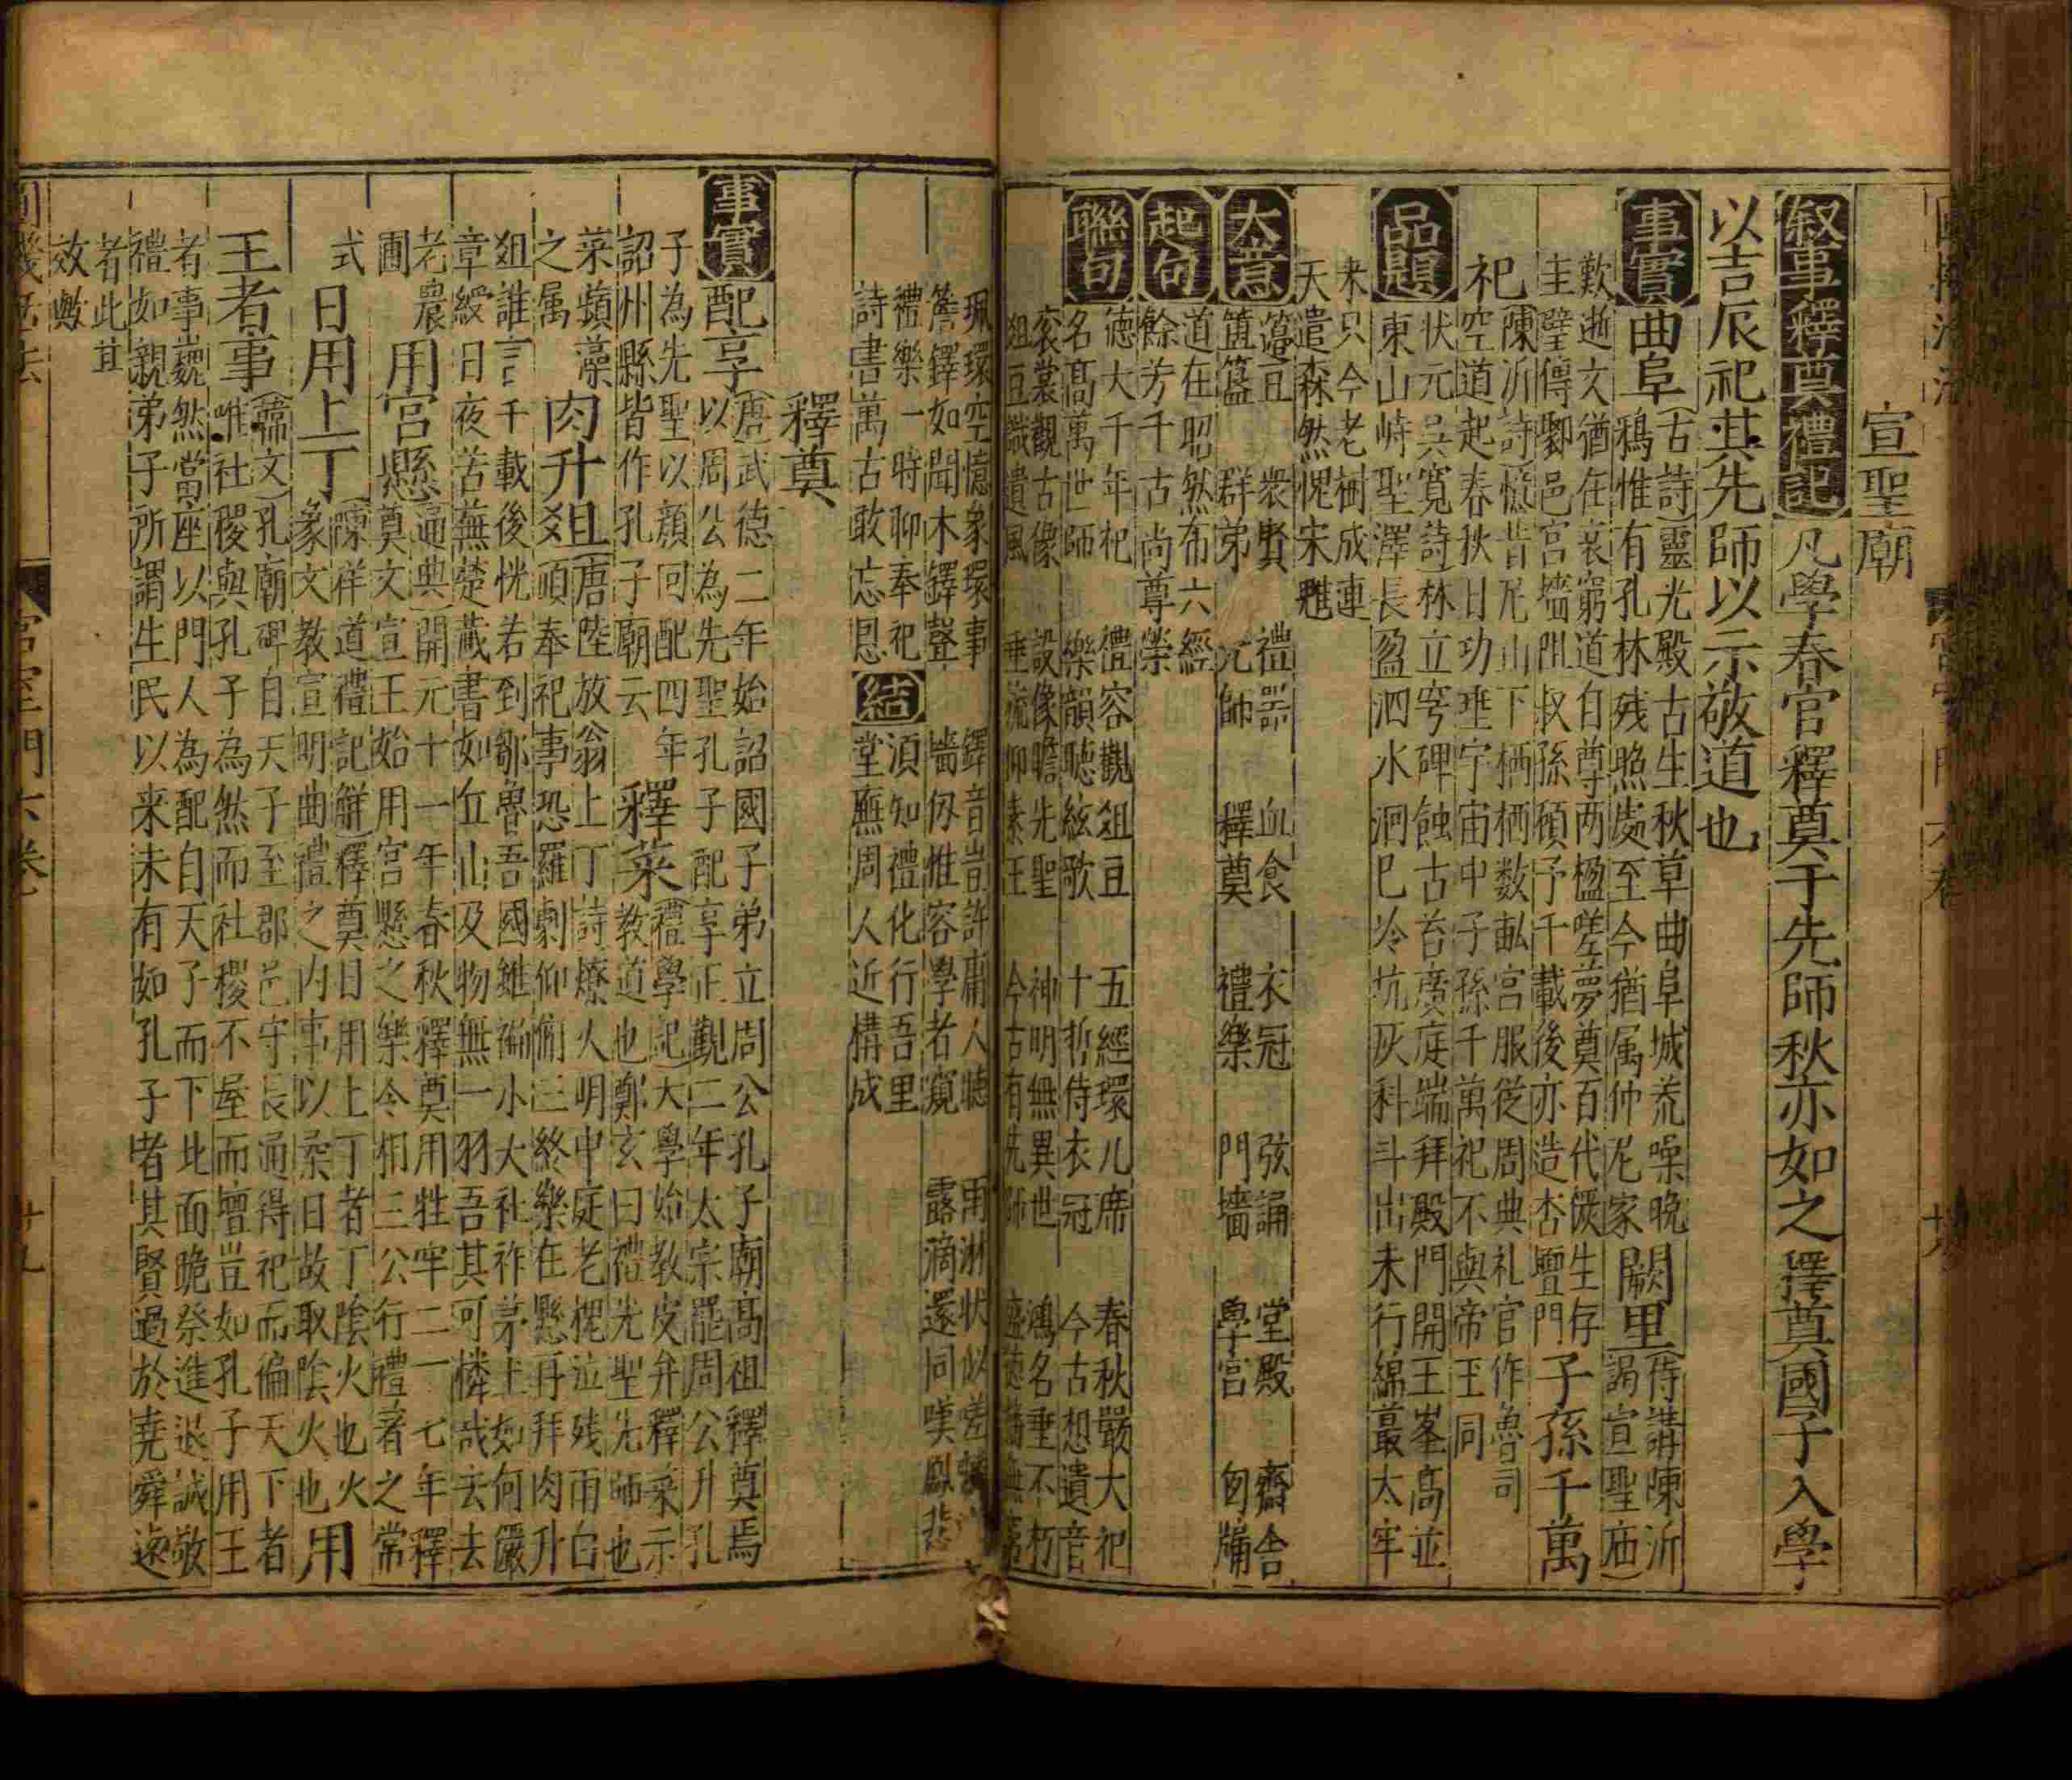 宣聖廟
叙事釋奠禮記凡學春官釋奠于先師秋亦如之釋奠國子入學
以吉辰祀其先師以示敬道也
事實曲阜(古詩)靈光殿古生秋草曲阜城荒噪晚
鴉惟有孔林残照䖏至今猶属仲尼家闕里(侍講陳沂
謁宣聖庙)
歎逝文猶在衰窮道自尊两楹嗟夢奠百代儼生存
圭璧傳鄹邑宮墻阻叔孫碩予千載後亦造杏壇門子孫千萬
祀陳沂詩憶昔尼山下栖栖数畝宮服從周典礼官作魯司
空道起春秋日功垂宇宙中子孫千萬祀不與帝王同
品題状元吳寬詩林立穹碑蝕古苔廣庭端拜殿門開王峯高並
東山峙聖澤長盈泗水洄巳冷坑灰科斗出未行綿蕞太牢
来只今老樹成連
天遣森然愧宋魋
大意籩豆 衆賢 禮器 血食 衣冠 弦誦 堂殿 齋舎
簠簋 群弟 元師 釋奠 禮樂 門墻 學宮
起句道在昭然布六經
餘芳千古尚尊榮
聯句德大千年祀 禮容觀俎豆 五經環几席 春秋嚴大祀
名髙萬世師 樂韻聴絃歌 十哲侍衣冠 今古想遺音
衮裳觀古像 設像瞻先聖 神明無異世 鴻名垂不朽
俎豆識遺風 垂旒仰素王 今古有先師
珮環空憶象環事 鐸音豈許庸人聴
簷鐸如聞木鐸聲 墻仭惟容學者窺 露滴還同嘆鳳悲
禮樂一時聊奉祀 結 湏知禮化行吾里
詩書萬古敢忘恩 堂廡周人近構成
釋奠
事實配享(唐)武德二年始詔國子弟立周公孔子廟髙祖釋奠焉
以周公為先聖孔子配享正觀二年太宗罷周公升孔
子為先聖以顔回配四年 釋菜(禮學記)大學始教皮弁釋菜示
詔州縣皆作孔子廟云 教道也鄭玄曰禮先聖先師也
菜蘋藻 肉升俎(唐陸放翁上丁詩燎火明中庭老槐泣残雨白
之属 頭奉祀事恐羅劇仰俯三終樂在懸再拜肉升
俎誰言千載後恍若到鄒魯吾國雖褊小大社祚茅土如何儼
章綬日夜苦蕪楚藏書如丘山及物無一羽吾其可憐哉去去
老農 用宮懸(通典)開元十一年春秋釋奠用牲牢二一七年釋
圃 奠文宣王始用宮懸之樂令相三公行禮著之常
式 日用上丁(陳祥道禮記觧)釋奠日用上丁者丁陰火也火
象文教宣明曲禮之内事以柔日故取陰火也用
王者事(韓文)孔廟碑自天子至郡邑守長通得祀而徧天下者
唯社稷與孔子為然而社稷不屋而壇豈如孔子用王
者事巍然當座以門人為配自天子而下北面跪祭進退誠敬
禮如親弟子所謂生民以来未有如孔子者其賢過於堯舜逺
者此其
效歟